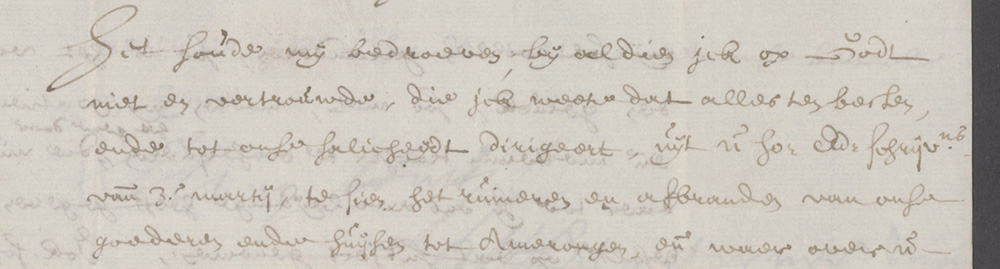 Het soude mij bedroeven, bij aldien ick op Godt
niet en vertrouwde, die ick weete dat alles ten besten,
ende tot onse salicheijdt dirigeert, uijt u ho: Ed: schrijvens
vañ 3.e martij, te sien het ruineren en afbranden van onse
goederen ende huijsen tot Amerongen, eñ waer over u